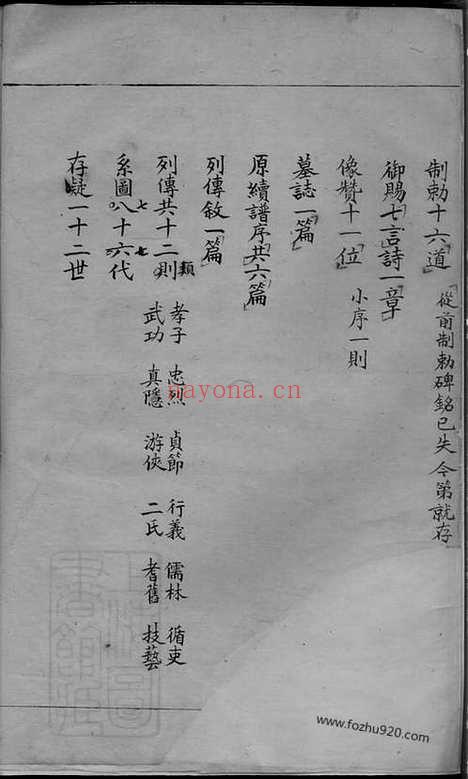 制勅十六道　從前制勅碑銘已失今第就存
御賜七言詩一章
像贊十一位　小序一則
墓誌一篇
原續譜序共六篇
列傳敘一篇
列傳共十二則類　孝子　忠烈　貞節　行義　儒林　循吏
武功　真隱　游俠　二氏　耆舊　技藝
系圖八十六代七七
存疑一十二世
nayona.cn
www.fozhu920.com